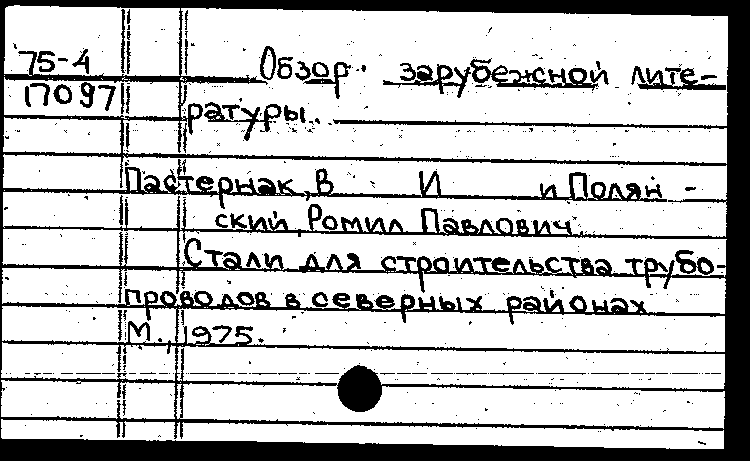 75-4 Обзор зарубежной лите-
17097
ратуры.
Пастернак, В И и Полян-
ский, Ромил Павлович.
Стали для строительства трубо-
проводов в северных районах
М., 1975.